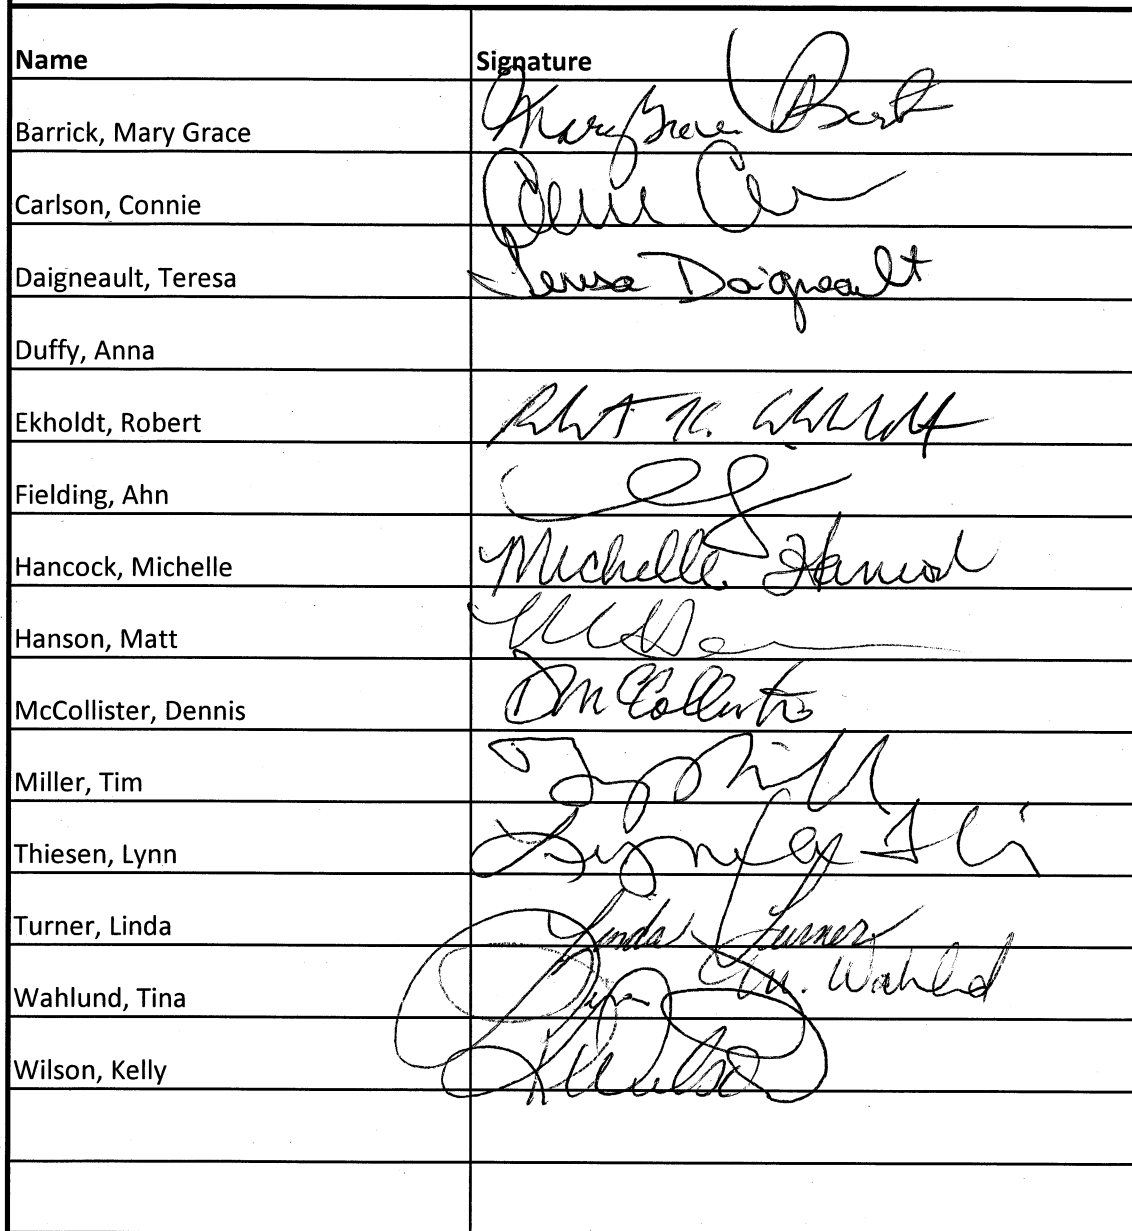 Name Signature
Barrick, Mary Grace Mary Grace
Carlson, Connie
Daigneault, Teresa Teresa Daigneault
Duffy, Anna
Ekholdt, Robert
Fielding, Ahn
Hancock, Michelle Michelle Hancock
Hanson, Matt
McCollister, Dennis D McCollister
Miller, Tim
Thiesen, Lynn
Turner, Linda Linda Turner
Wahlund, Tina Tina M. Wahlund
Wilson, Kelly K Wilson